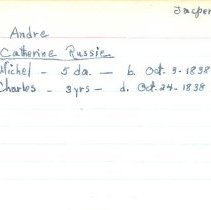 Jasper
Andre
Catherine Russie
Michel - 5 da. - b. Oct. 9 - 1838
Charles - 3 yrs - d. Oct. 24 - 1838